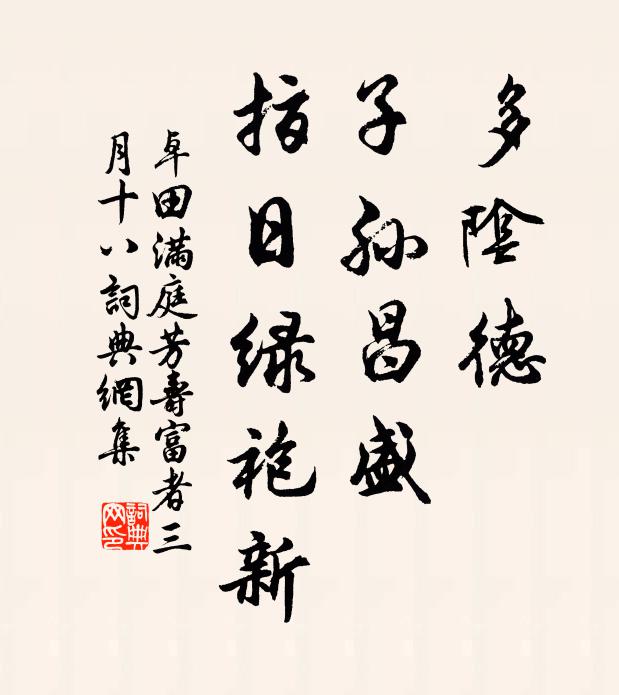 多陰德
子孫昌盛
指日绿袍新
卓田满庭芳壽富者三
月十八詞典網集
詞典网印